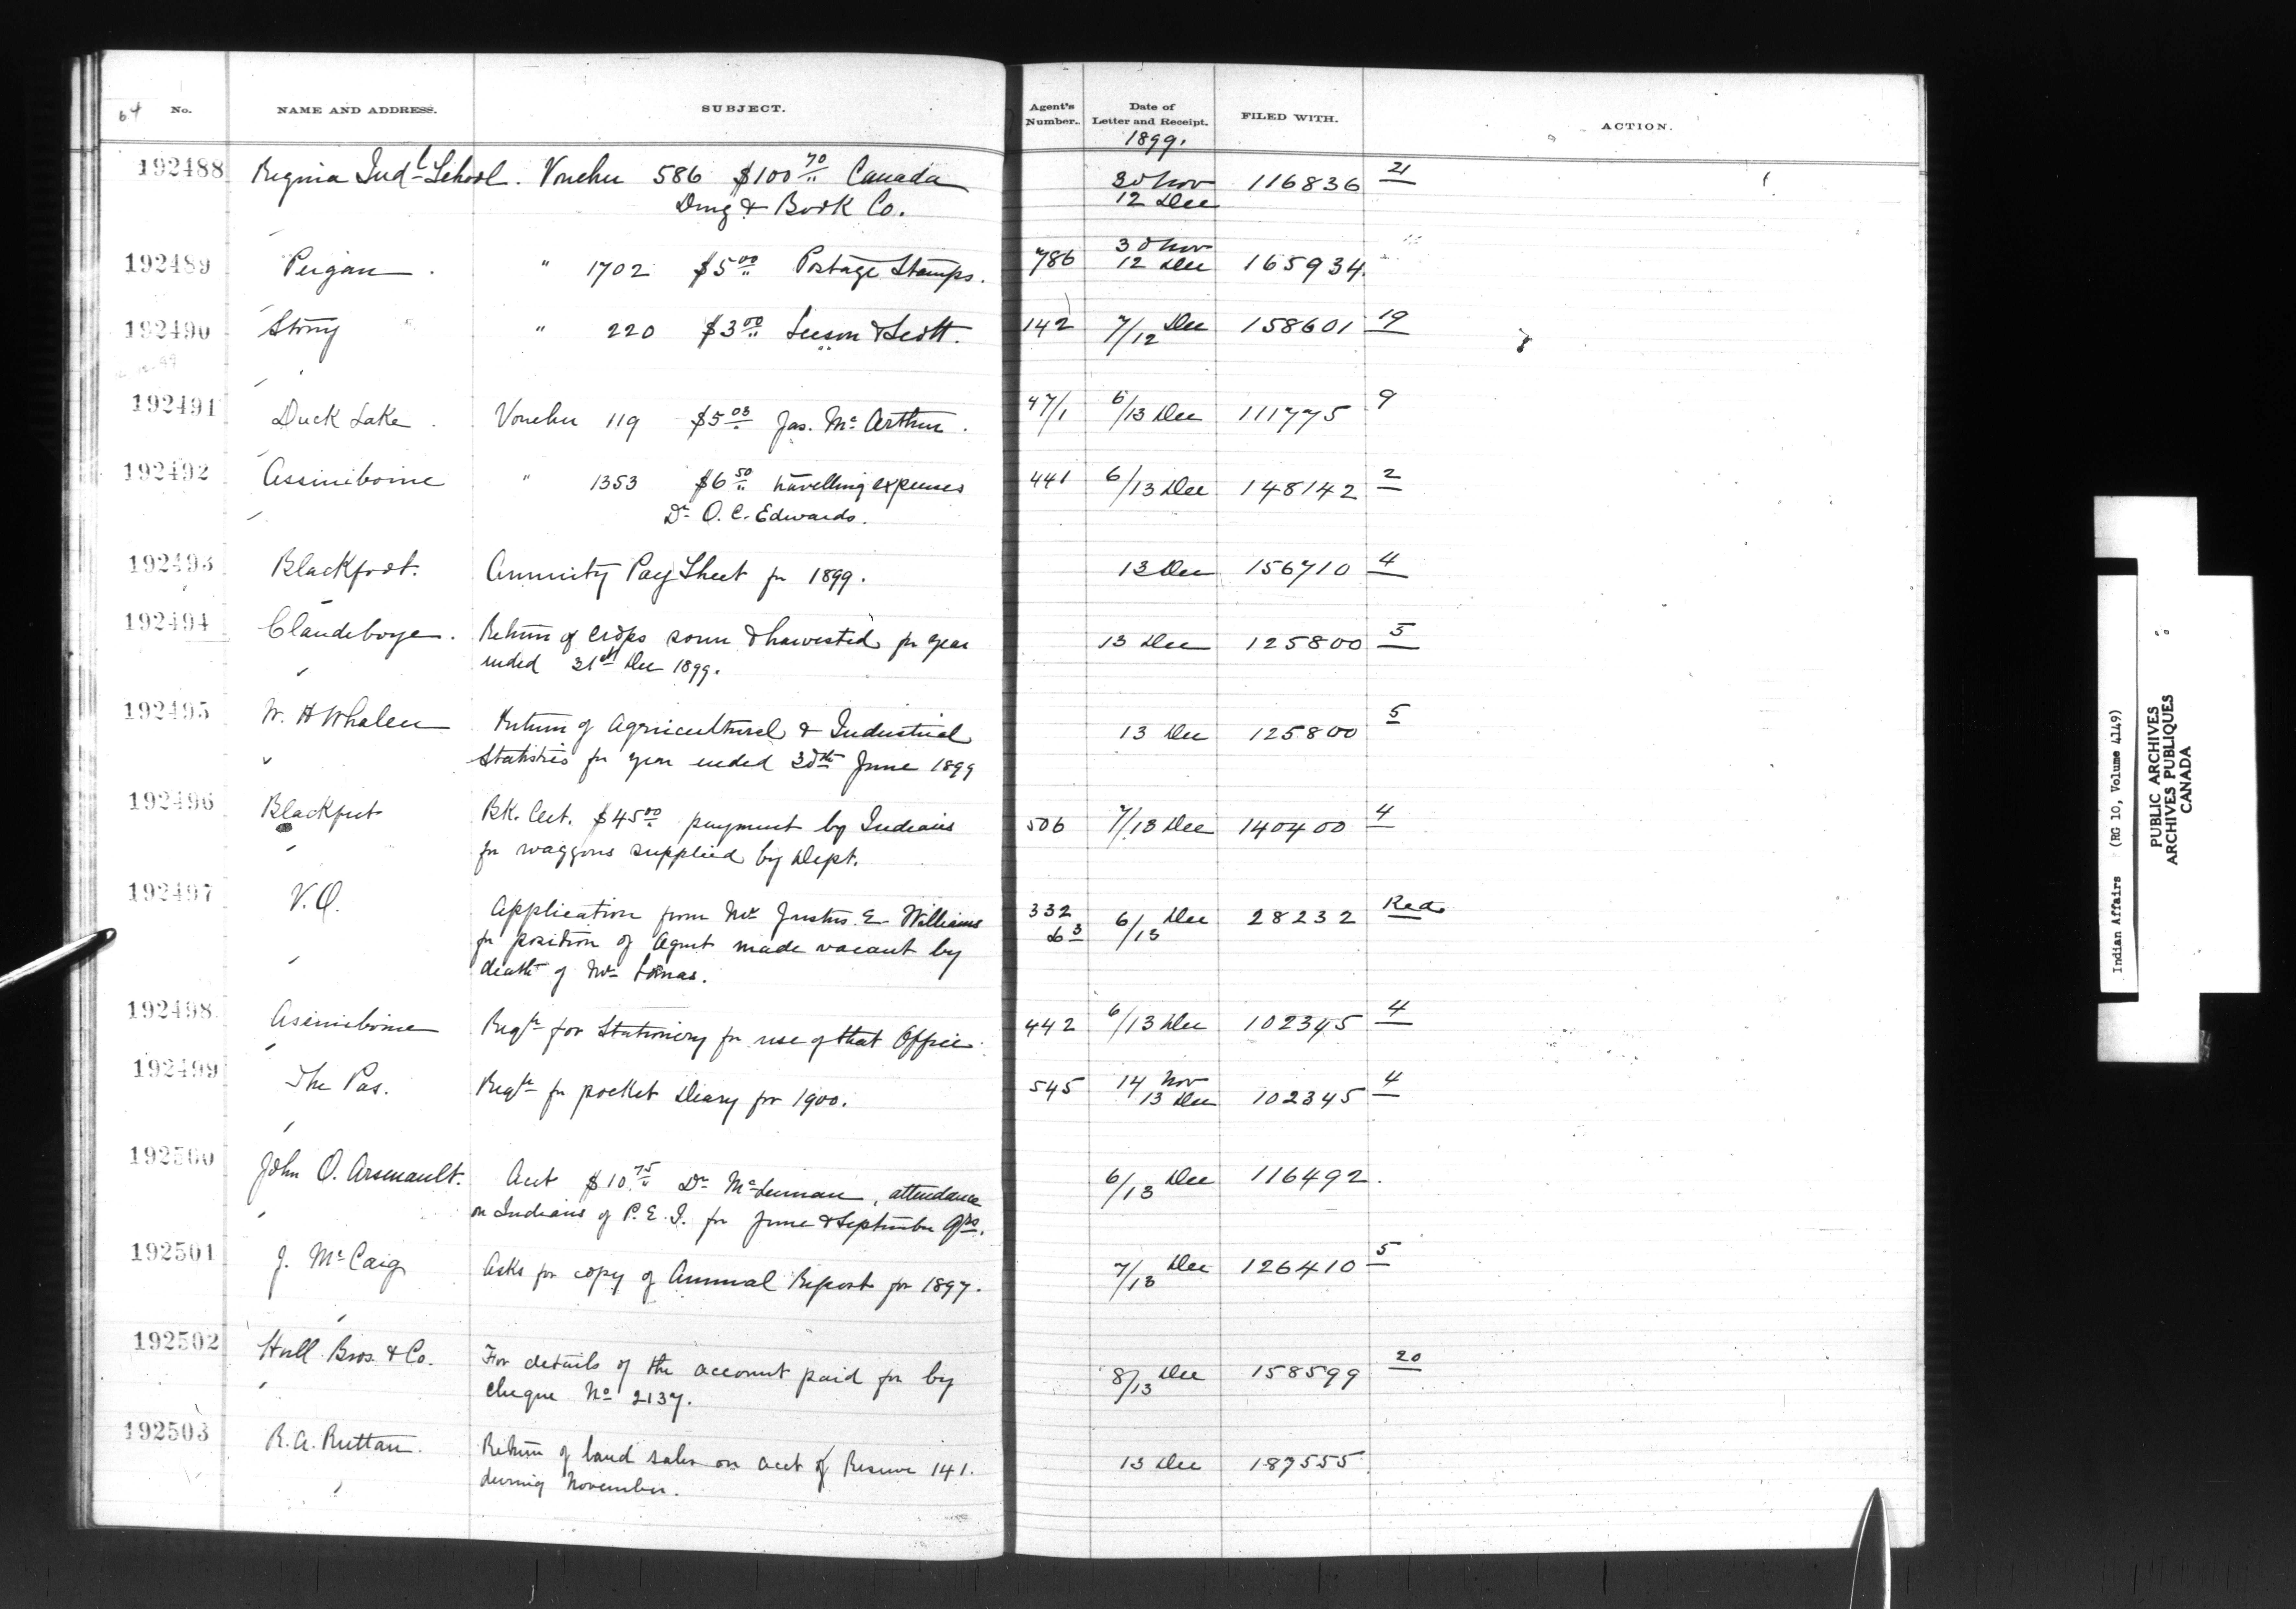 64 No. NAME AND ADDRESS. SUBJECT. Agent's Number. Date of Letter and Receipt. FILED WITH. ACTION.
1899.
192488 Regina Indl School. Voucher 586 $100 70 Canada 30 Nov 116836 21
Drug & Book Co. 12 Dec
192489 Peigan. " 1702 $5 00 Postage Stamps. 786 30 Nov 12 Dec 165934
192490 Stony " 220 $3 00 Leeson & Scott. 142 7/12 Dec 158601 19
192491 Duck Lake. Voucher 119 $5 03 Jas. Mc Arthur. 47/1 6/13 Dec 111775 9
192492 Assiniboine " 1353 $6 50 travelling expenses 441 6/13 Dec 148142 2
Dr O. C. Edwards.
192493 Blackfoot. Annuity Pay Sheet for 1899. 13 Dec 156710 4
192494 Clandeboye. Return of crops sown & harvested for year 13 Dec 125800 5
ended 31st Dec 1899.
192495 W. H Whalen Return of Agricultural & Industrial 13 Dec 125800 5
Statistics for year ended 30th June 1899
192496 Blackfoot BK. Cert. $45 00 payment by Indians 506 7/13 Dec 140400 4
for waggons supplied by Dept.
192497 V.O. Application from Mr Justus. E. Williams 332 6/13 Dec 28232 Red
for position of Agent made vacant by
death of Mr Lomas.
192498 Assiniboine Reqn for Stationery for use of that Office. 442 6/13 Dec 102345 4
192499 The Pas. Reqn for pocket Diary for 1900. 545 14 Nov 13 Dec 102345 4
192500 John O. Arsenault. Acct $10 75 Dr McLennan, attendance 6/13 Dec 116492.
on Indians of P. E. I. for June & September Qrs.
192501 J. McCaig Asks for copy of Annual Report for 1897. 7/13 Dec 126410 5
192502 Hull Bros. & Co. For details of the account paid for by 8/13 Dec 158599 20
cheque No 2137.
192503 R. A. Ruttan. Return of land sales on acct of Reserve 141. 13 Dec 187555
during November.
Indian Affairs (RG 10, Volume 4149)
PUBLIC ARCHIVES
ARCHIVES PUBLIQUES
CANADA